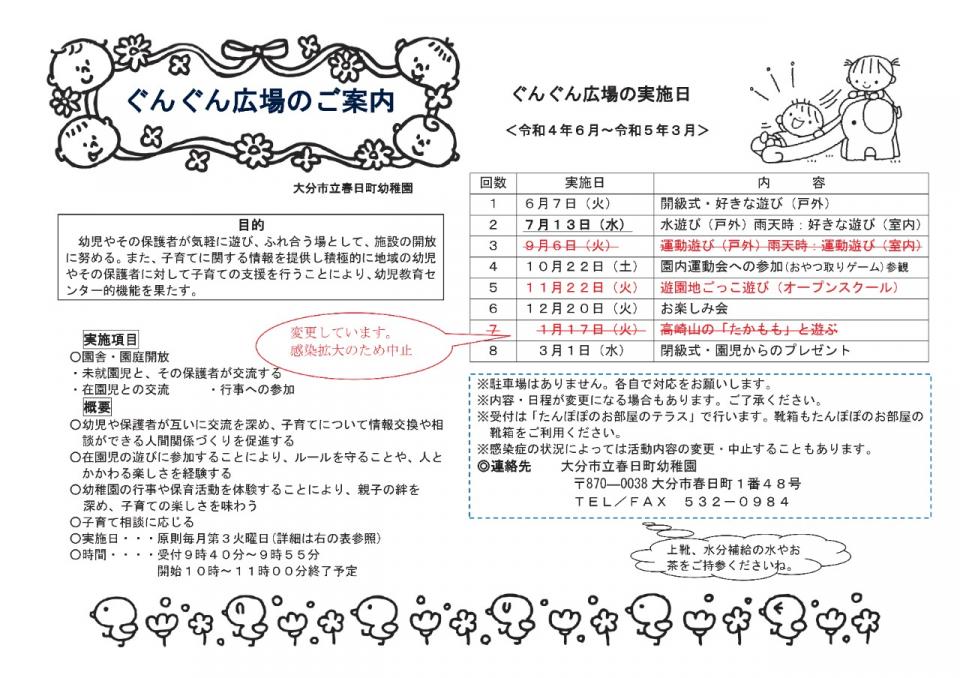 ぐんぐん広場のご案内
大分市立春日町幼稚園
目的
幼児やその保護者が気軽に遊び、ふれ合う場として、施設の開放
に努める。また、子育てに関する情報を提供し積極的に地域の幼児
やその保護者に対して子育ての支援を行うことにより、幼児教育セ
ンター的機能を果たす。
実施項目
○園舎・園庭開放
・未就園児と、その保護者が交流する
・在園児との交流　　・行事への参加
概要
○幼児や保護者が互いに交流を深め、子育てについて情報交換や相
談ができる人間関係づくりを促進する
○在園児の遊びに参加することにより、ルールを守ることや、人と
かかわる楽しさを経験する
○幼稚園の行事や保育活動を体験することにより、親子の絆を
深め、子育ての楽しさを味わう
○子育て相談に応じる
○実施日・・・原則毎月第３火曜日(詳細は右の表参照)
○時間・・・・受付９時４０分～９時５５分
開始１０時～１１時００分終了予定
変更しています。
感染拡大のため中止
ぐんぐん広場の実施日
＜令和４年６月～令和５年３月＞
回数　実施日　内　容
1　６月７日（火）　開級式・好きな遊び（戸外）
2　７月１３日（水）　水遊び（戸外）雨天時：好きな遊び（室内）
3　９月６日（火）　運動遊び（戸外）雨天時：運動遊び（室内）
4　１０月２２日（土）　園内運動会への参加(おやつ取りゲーム)参観
5　１１月２２日（火）　遊園地ごっこ遊び（オープンスクール）
6　１２月２０日（火）　お楽しみ会
7　１月１７日（火）　高崎山の「たかもも」と遊ぶ
8　３月１日（水）　閉級式・園児からのプレゼント
※駐車場はありません。各自で対応をお願いします。
※内容・日程が変更になる場合もあります。ご了承ください。
※受付は「たんぽぽのお部屋のテラス」で行います。靴箱もたんぽぽのお部屋の
靴箱をご利用ください。
※感染症の状況によっては活動内容の変更・中止することもあります。
◎連絡先　　大分市立春日町幼稚園
〒870―0038 大分市春日町１番４８号
ＴＥＬ／ＦＡＸ　５３２－０９８４
上靴、水分補給の水やお
茶をご持参くださいね。